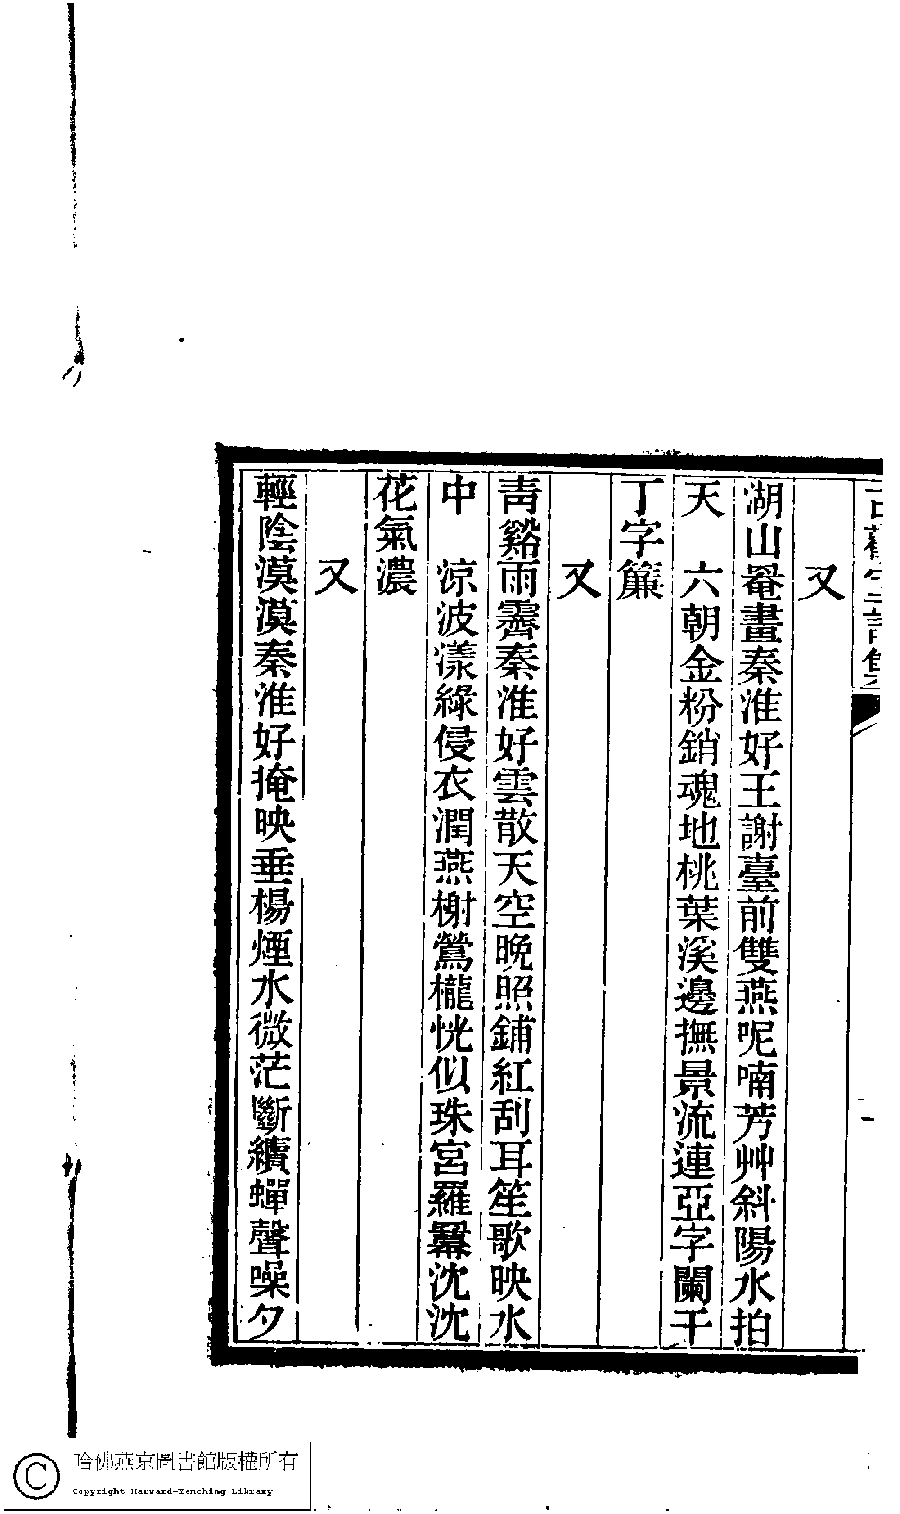 又
湖山罨畫秦淮好王謝臺前雙燕呢喃芳艸斜陽水拍
天　六朝金粉銷魂地桃葉溪邊撫景流連亞字闌干
丁字簾
又
靑谿雨霽秦淮好雲散天空晚照鋪紅刮耳笙歌映水
中　涼波漾綠侵衣潤燕榭鶯櫳恍似珠宮羅冪沈沈
花氣濃
又
輕陰漠漠秦淮好掩映垂楊煙水微茫斷續蟬聲噪夕
哈佛燕京圖書館版權所有
Copyright Harvard-Yenching Library